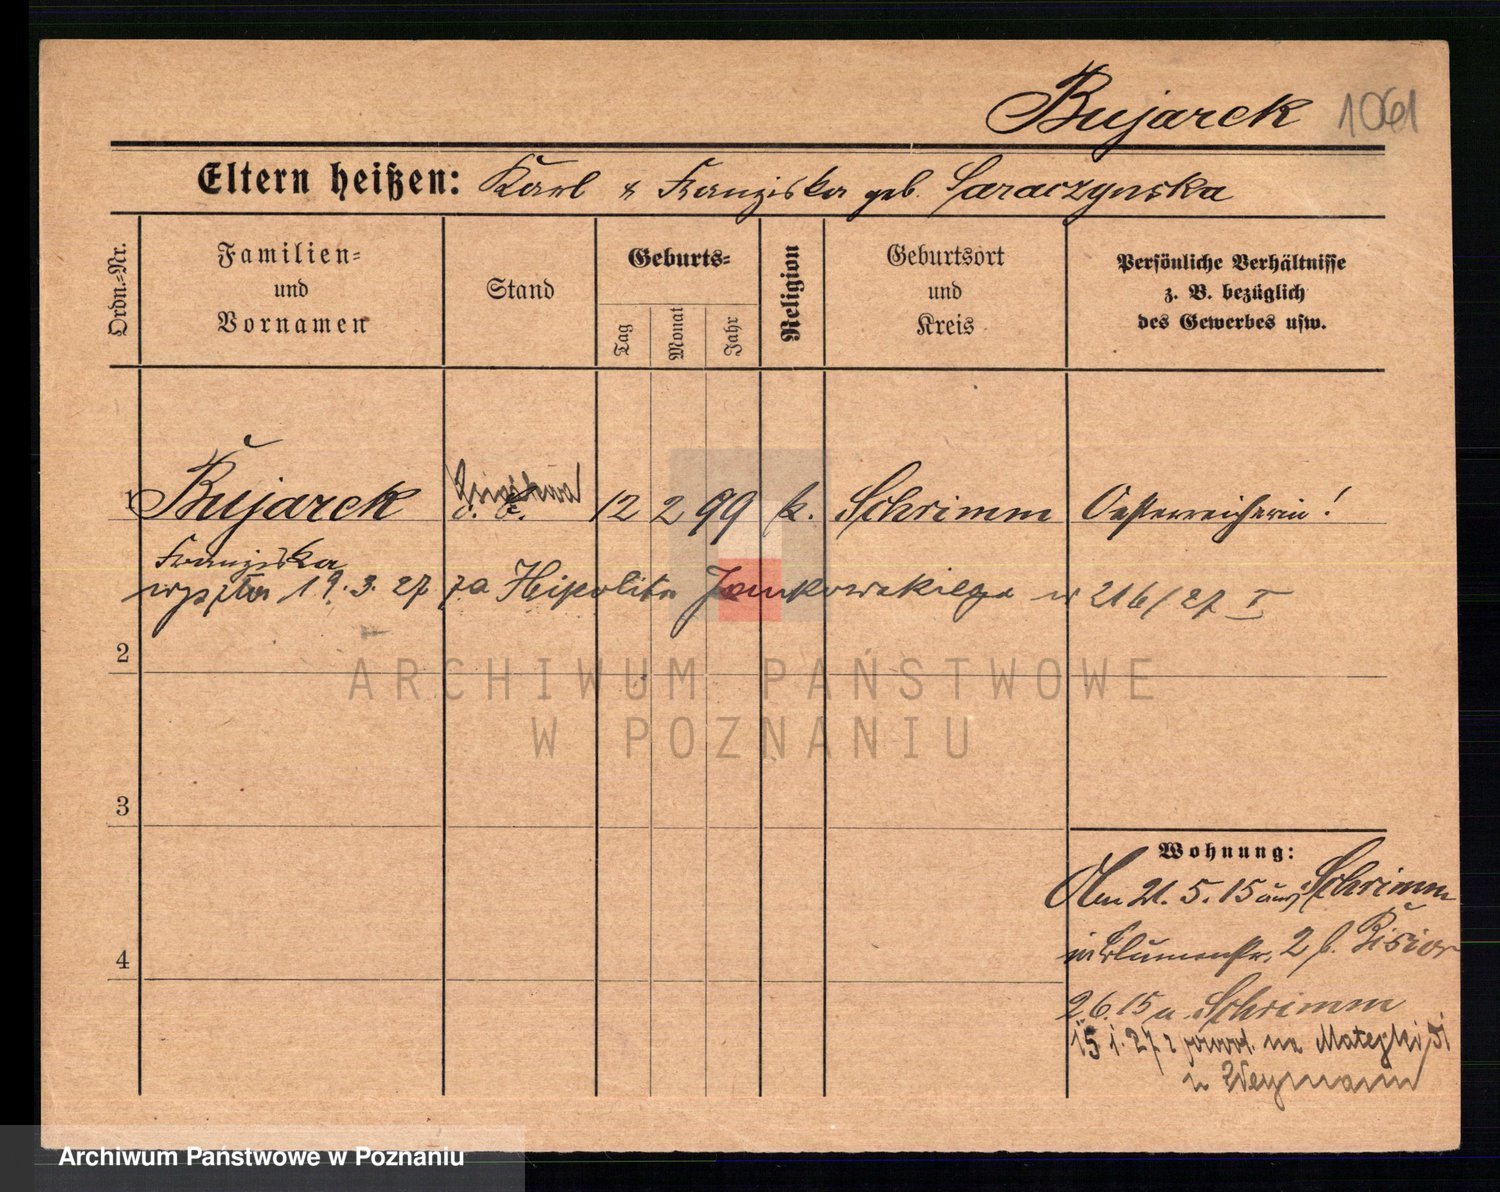 Bujarek 1061
Eltern heißen: Karl & Franziska geb. Saraczynska
Ordn.=Nr.
Familien=
und
Vornamen
Stand
Geburts=
Tag
Monat
Jahr
Religion
Geburtsort
und
Kreis
Persönliche Verhältnisse
z. B. bezüglich
des Gewerbes usw.
1 Bujarek 12 2 99 k. Schrimm Oesterreicherin!
Franziska
wyszła 19.3.27 za Hipolita Jankowskiego 216/27 I
2
3
4
Wohnung:
Am 21. 5. 15 aus Schrimm
in Blumenstr. 2 b.
2 6. 15 n. Schrimm
15 1. 27 z powrot. na Matejki 51
u Weymann
ARCHIWUM PAŃSTWOWE
W POZNANIU
Archiwum Państwowe w Poznaniu